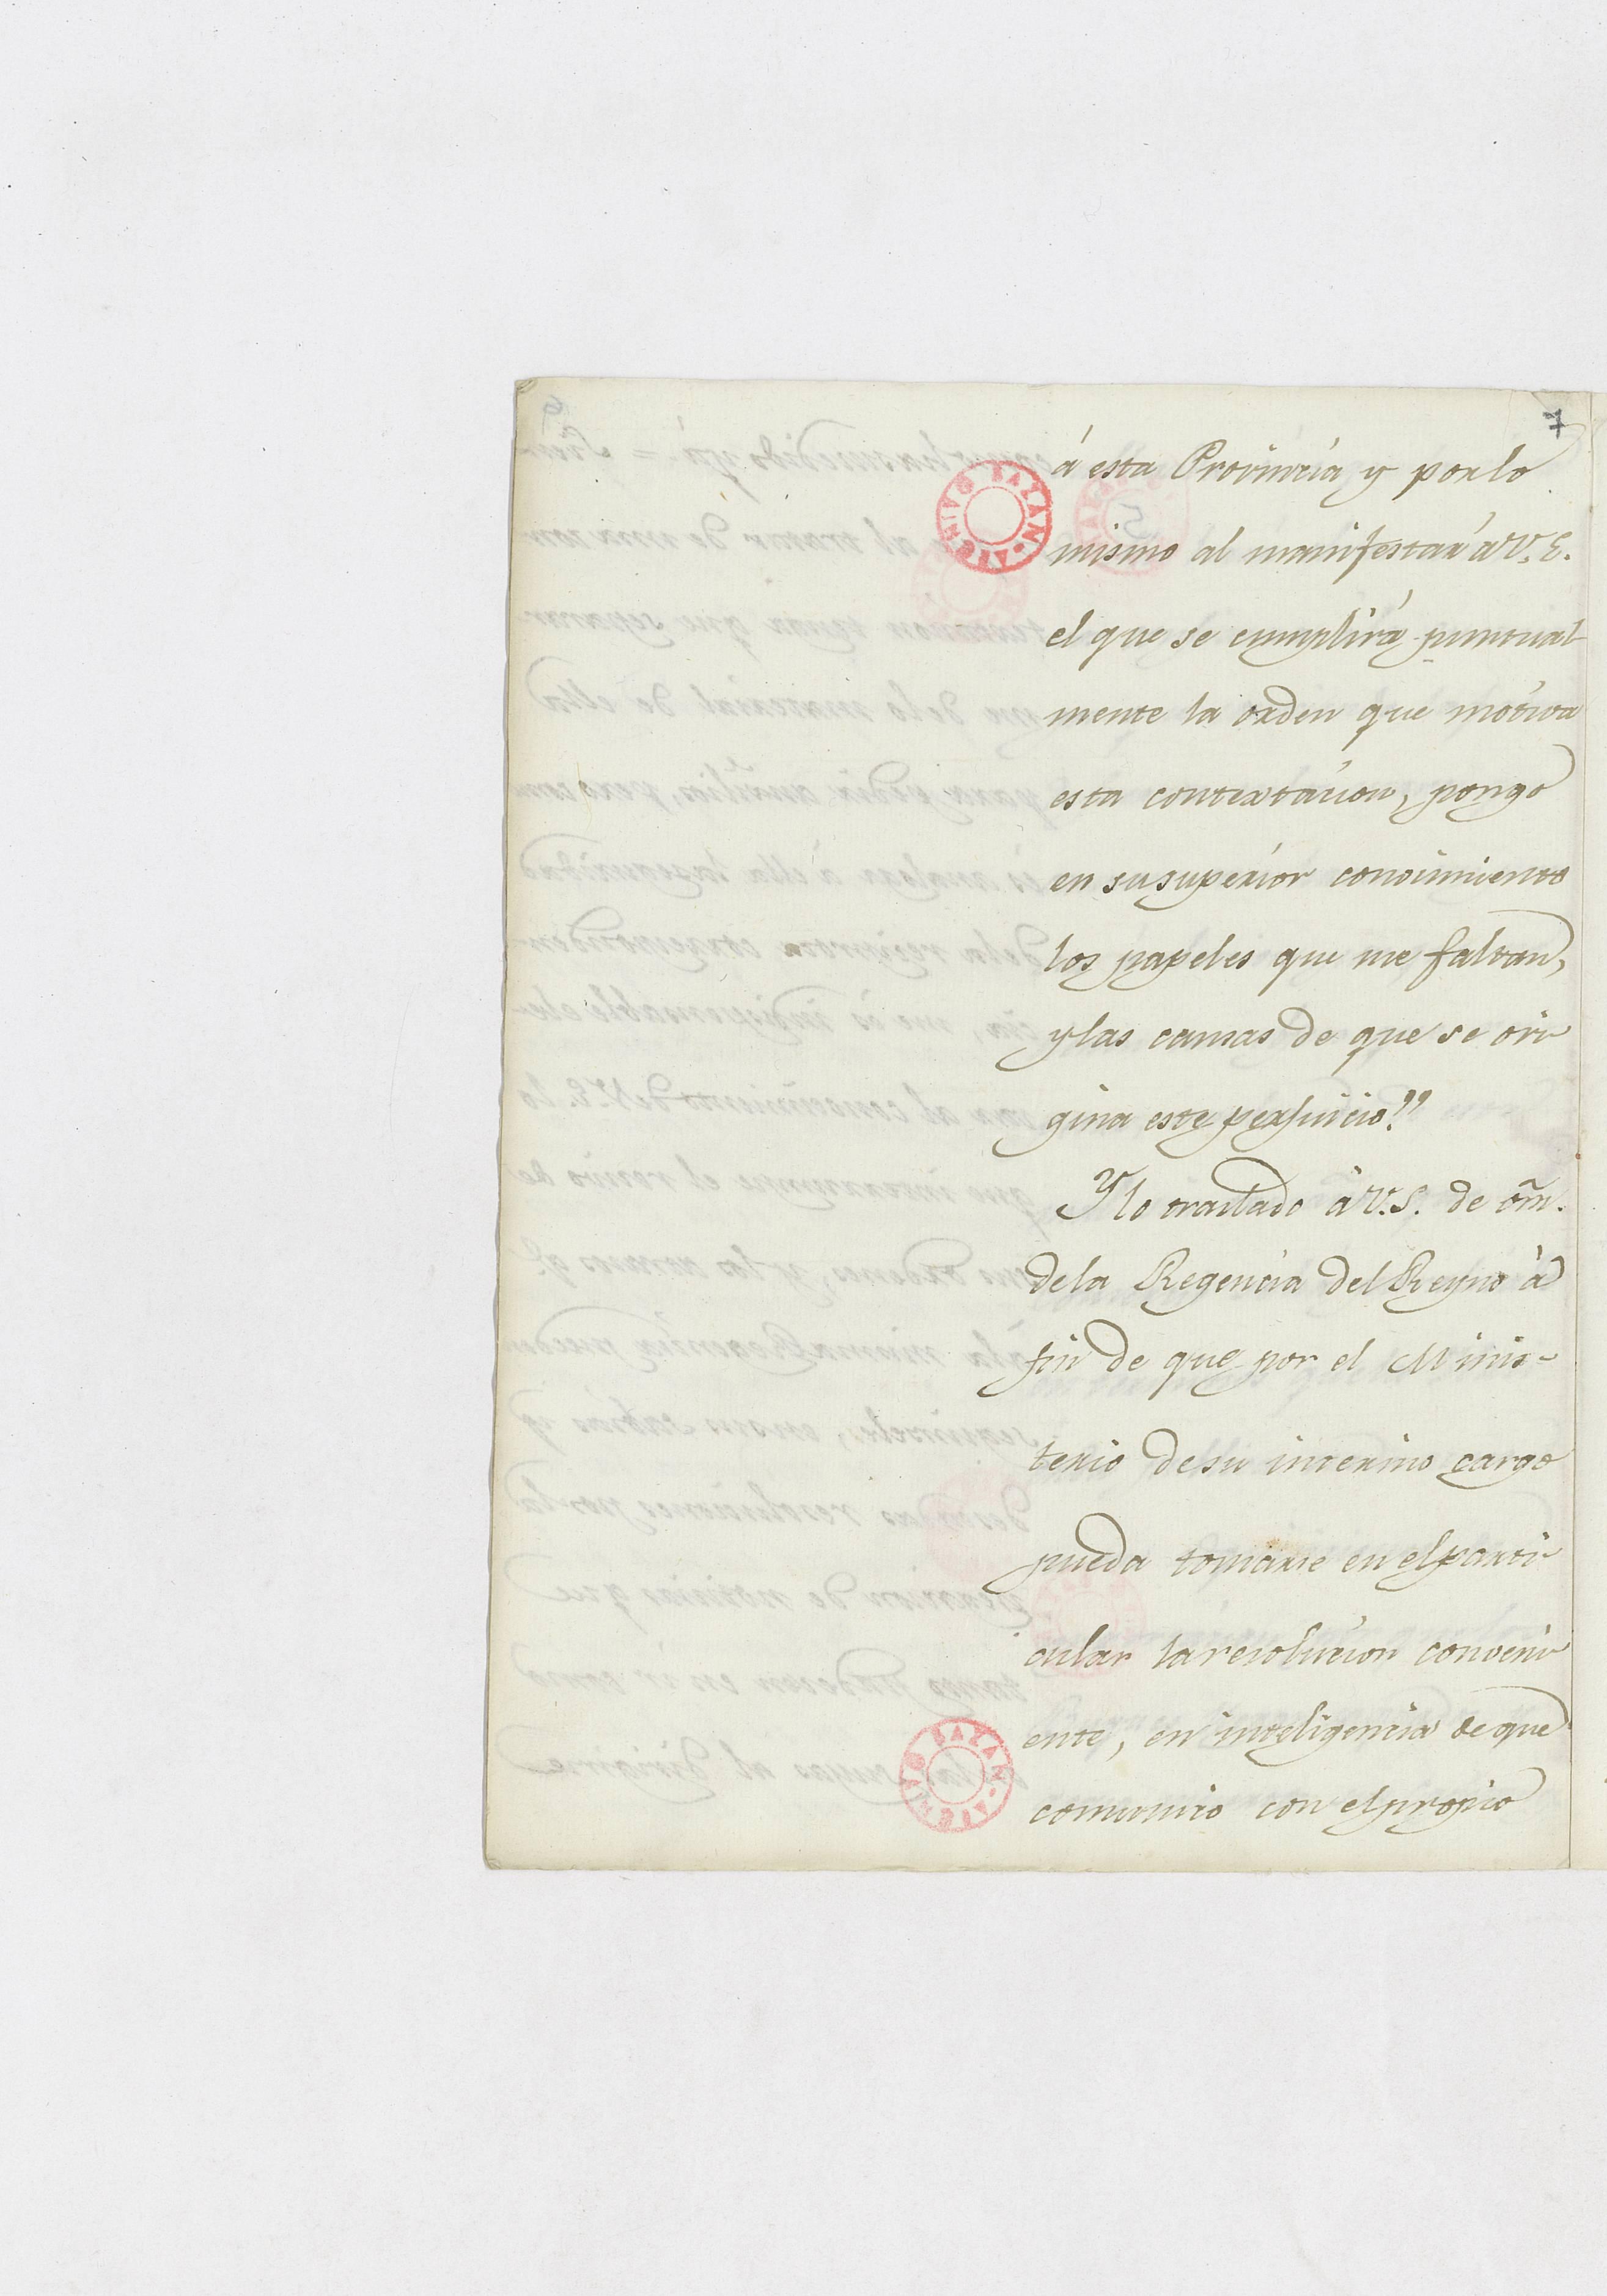 7
á esta Provincia y por lo
mismo al manifestar á V. E.
el que se cumplirá puntual
mente la orden que motiva
esta contextacion, pongo
en su superior conocimiento
los papeles que me faltan,
y las causas de que se ori
gina este perjuicio."
Y lo traslado á V. S. de orñ.
de la Regencia del Reyno á
fin de que por el Minis-
terio de su interino cargo
pueda tomarse en el parti
cular la resolucion conveni
ente, en inteligencia de que
comunico con el propio
ARCHIVO BAZAN
ARCHIVO BAZAN